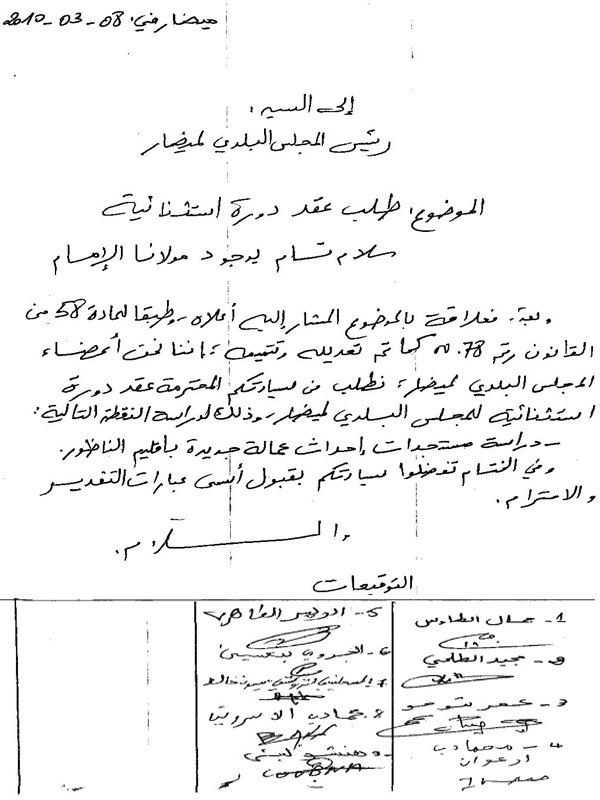 ميضار في: 08-03-2010
إلى السيد:
رئيس المجلس البلدي لميضار
الموضوع: طلب عقد دورة استثنائية
سلام تام بوجود مولانا الإمام
وبعد، فعلاقة بالموضوع المشار إليه أعلاه، وطبقا للمادة 58 من
القانون رقم 78.00 كما تم تعديله وتتميمه، إننا نحن أعضاء
المجلس البلدي لميضار، نطلب من سيادتكم المحترمة عقد دورة
استثنائية للمجلس البلدي لميضار، وذلك لدراسة النقطة التالية:
- دراسة مستجدات إحداث عمالة جديدة بإقليم الناظور.
وفي الختام تفضلوا سيادتكم بقبول أسمى عبارات التقدير
والاحترام.
والسلام.
التوقيعات
1- جمال الطاوس
2- مجيد الطلحي
3- عمر
4-
5- الطاهر
6-
7-
8-
9- لبنى
LOUBNA